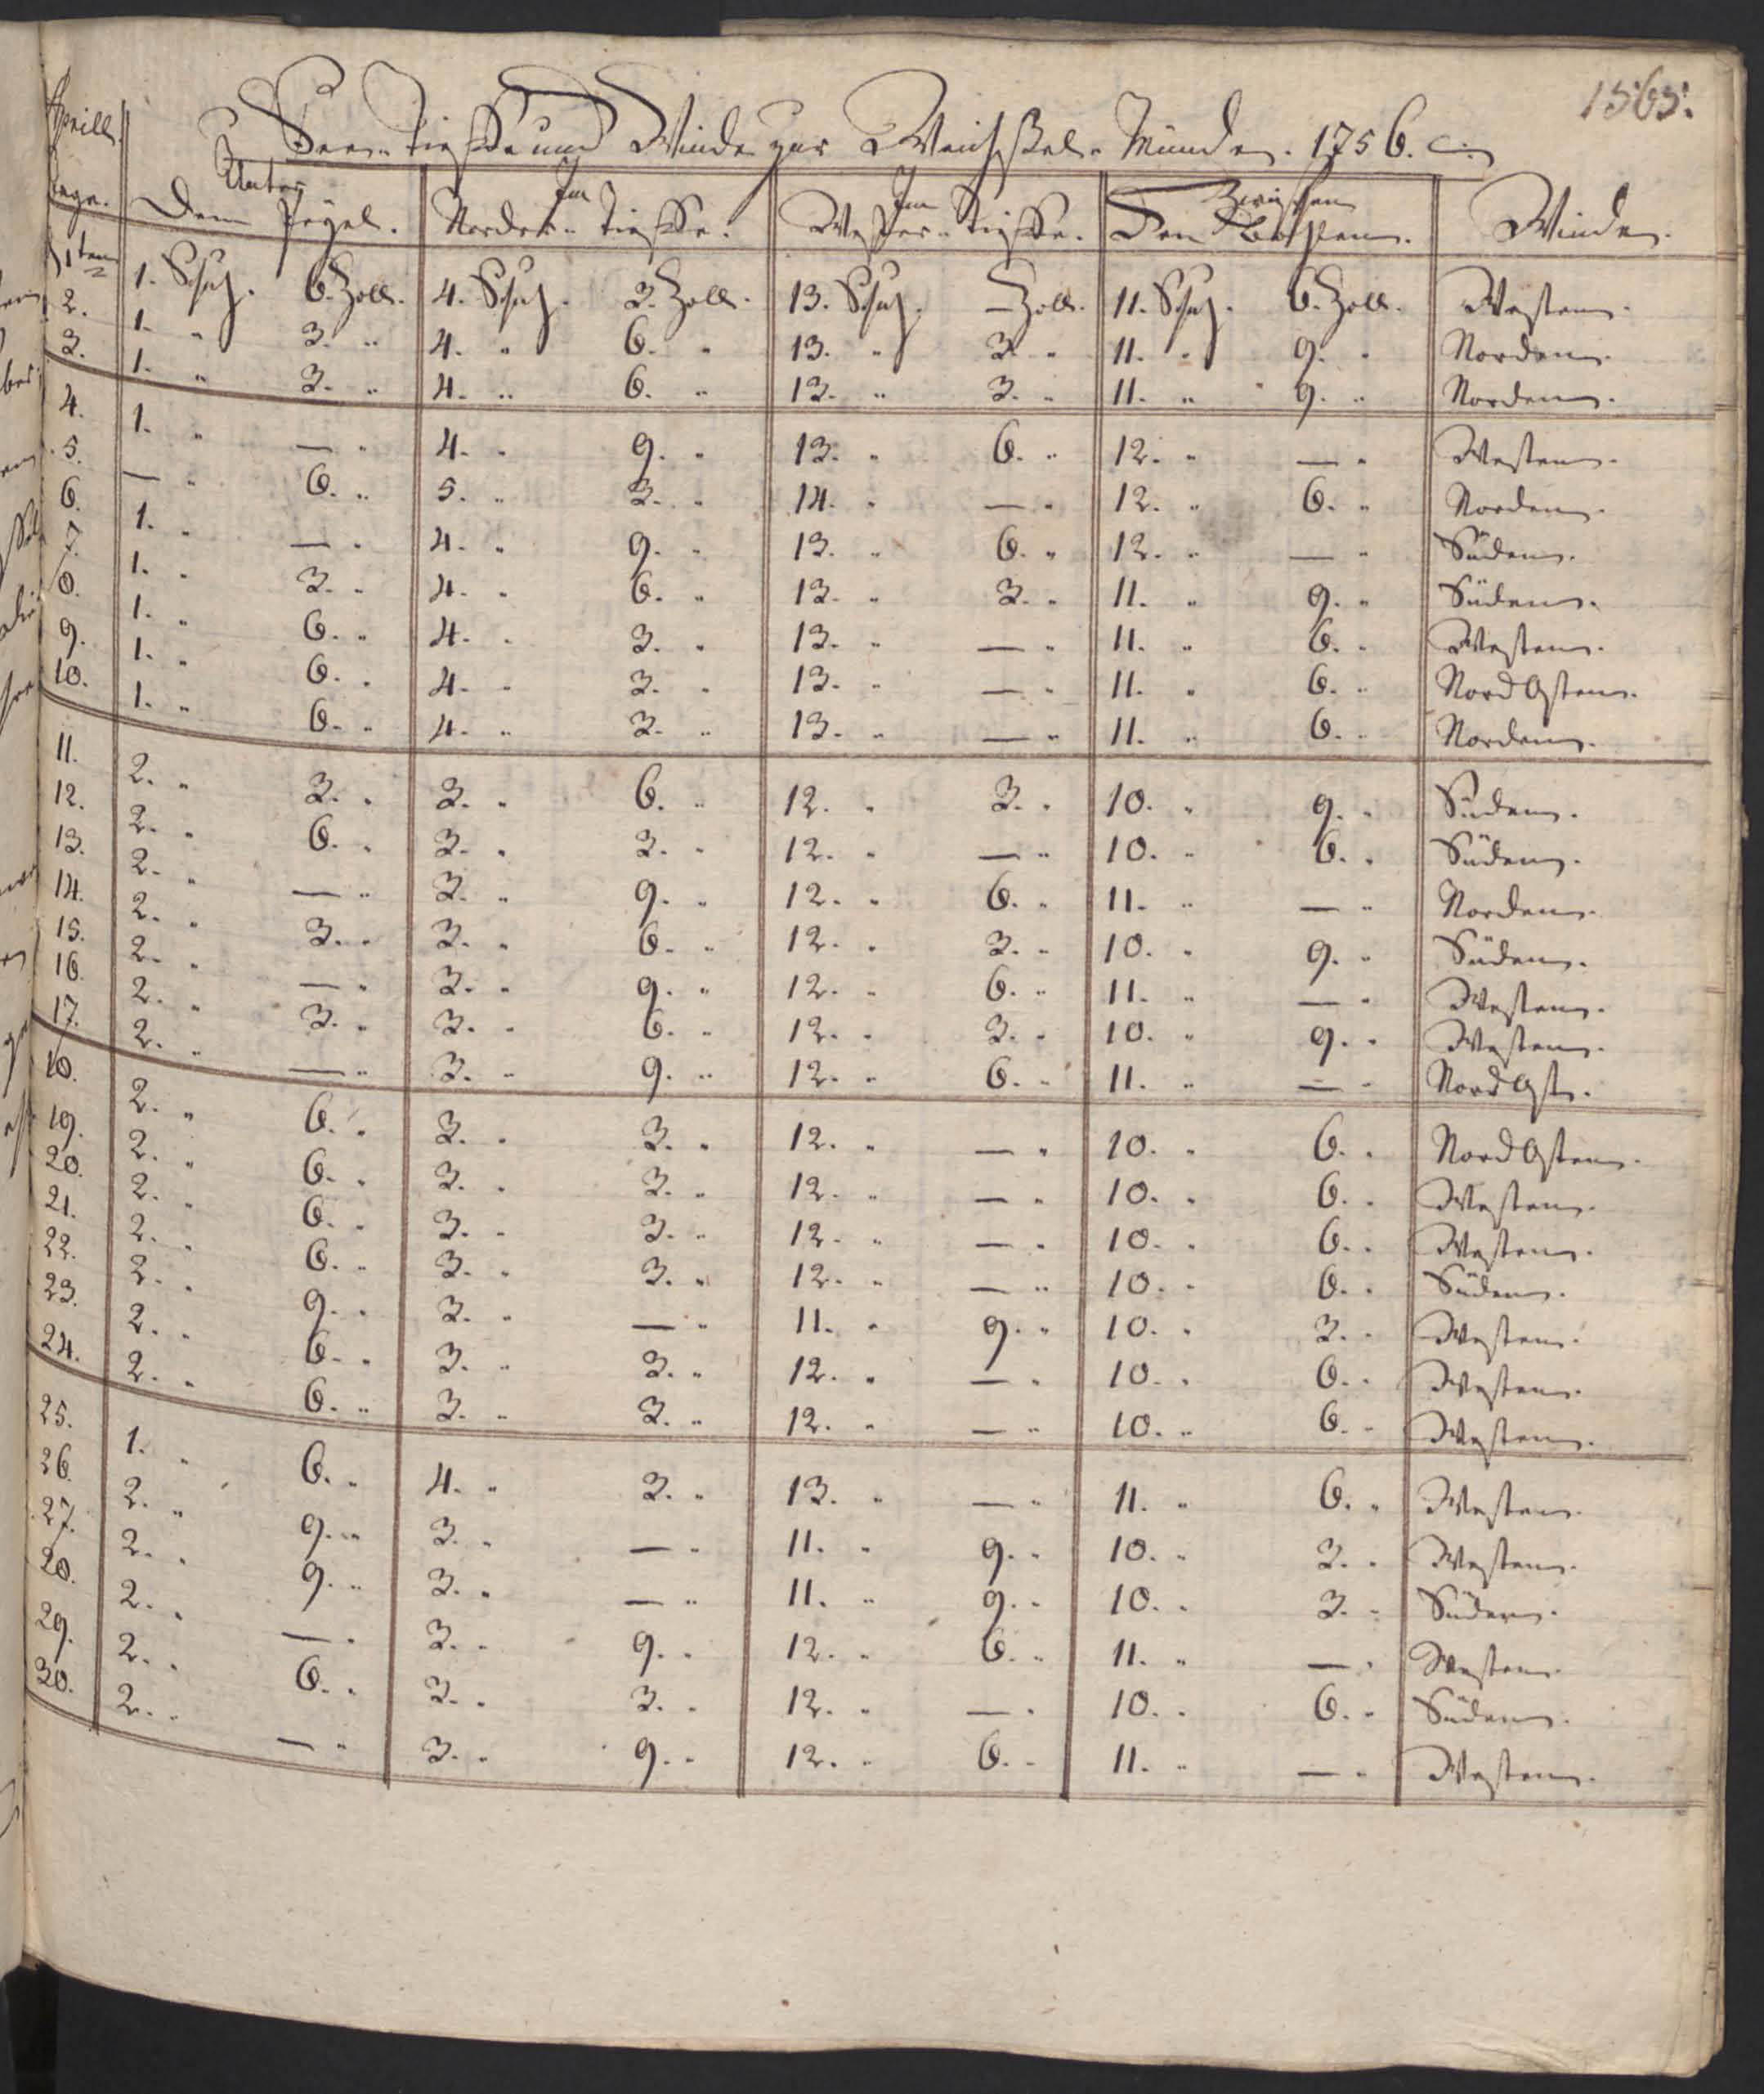 1563.
Aprill. See-Tieffe und Winde zur Weichssel-Münde. 1756.
Tage. Unter Dem Pegel. Im Norder-Tieffe. Im Wester-Tieffe. Zwischen Den Winde.
1ten 1. Schuh. 6. Zoll. 4. Schuh. 3. Zoll. 13. Schuh. — Zoll. 11. Schuh. 6. Zoll. Westen.
2. 1. " 3. " 4. " 6. " 13. " 3. " 11. " 9. " Norden.
3. 1. " 3. " 4. " 6. " 13. " 3. " 11. " 9. " Norden.
4. 1. " — " 4. " 9. " 13. " 6. " 12. " — " Westen.
5. — " 6. " 5. " 3. " 14. " — " 12. " 6. " Norden.
6. 1. " — " 4. " 9. " 13. " 6. " 12. " — " Süden.
7. 1. " 3. " 4. " 6. " 13. " 3. " 11. " 9. " Süden.
8. 1. " 6. " 4. " 3. " 13. " — " 11. " 6. " Westen.
9. 1. " 6. " 4. " 3. " 13. " — " 11. " 6. " Nord Osten.
10. 1. " 6. " 4. " 3. " 13. " — " 11. " 6. " Norden.
11. 2. " 3. " 3. " 6. " 12. " 3. " 10. " 9. " Süden.
12. 2. " 6. " 3. " 3. " 12. " — " 10. " 6. " Süden.
13. 2. " — " 3. " 9. " 12. " 6. " 11. " — " Norden.
14. 2. " 3. " 3. " 6. " 12. " 3. " 10. " 9. " Süden.
15. 2. " — " 3. " 9. " 12. " 6. " 11. " — " Westen.
16. 2. " 3. " 3. " 6. " 12. " 3. " 10. " 9. " Westen.
17. 2. " — " 3. " 9. " 12. " 6. " 11. " — " Nord Ost.
18. 2. " 6. " 3. " 3. " 12. " — " 10. " 6. " Nord Osten.
19. 2. " 6. " 3. " 3. " 12. " — " 10. " 6. " Westen.
20. 2. " 6. " 3. " 3. " 12. " — " 10. " 6. " Westen.
21. 2. " 6. " 3. " 3. " 12. " — " 10. " 6. " Süden.
22. 2. " 9. " 3. " — " 11. " 9. " 10. " 3. " Westen.
23. 2. " 6. " 3. " 3. " 12. " — " 10. " 6. " Westen.
24. 2. " 6. " 3. " 3. " 12. " — " 10. " 6. " Westen.
25. 1. " 6. " 4. " 3. " 13. " — " 11. " 6. " Westen.
26. 2. " 9. " 3. " — " 11. " 9. " 10. " 3. " Westen.
27. 2. " 9. " 3. " — " 11. " 9. " 10. " 3. " Süden.
28. 2. " — " 3. " 9. " 12. " 6. " 11. " — " Westen.
29. 2. " 6. " 3. " 3. " 12. " — " 10. " 6. " Süden.
30. 2. " — " 3. " 9. " 12. " 6. " 11. " — " Westen.